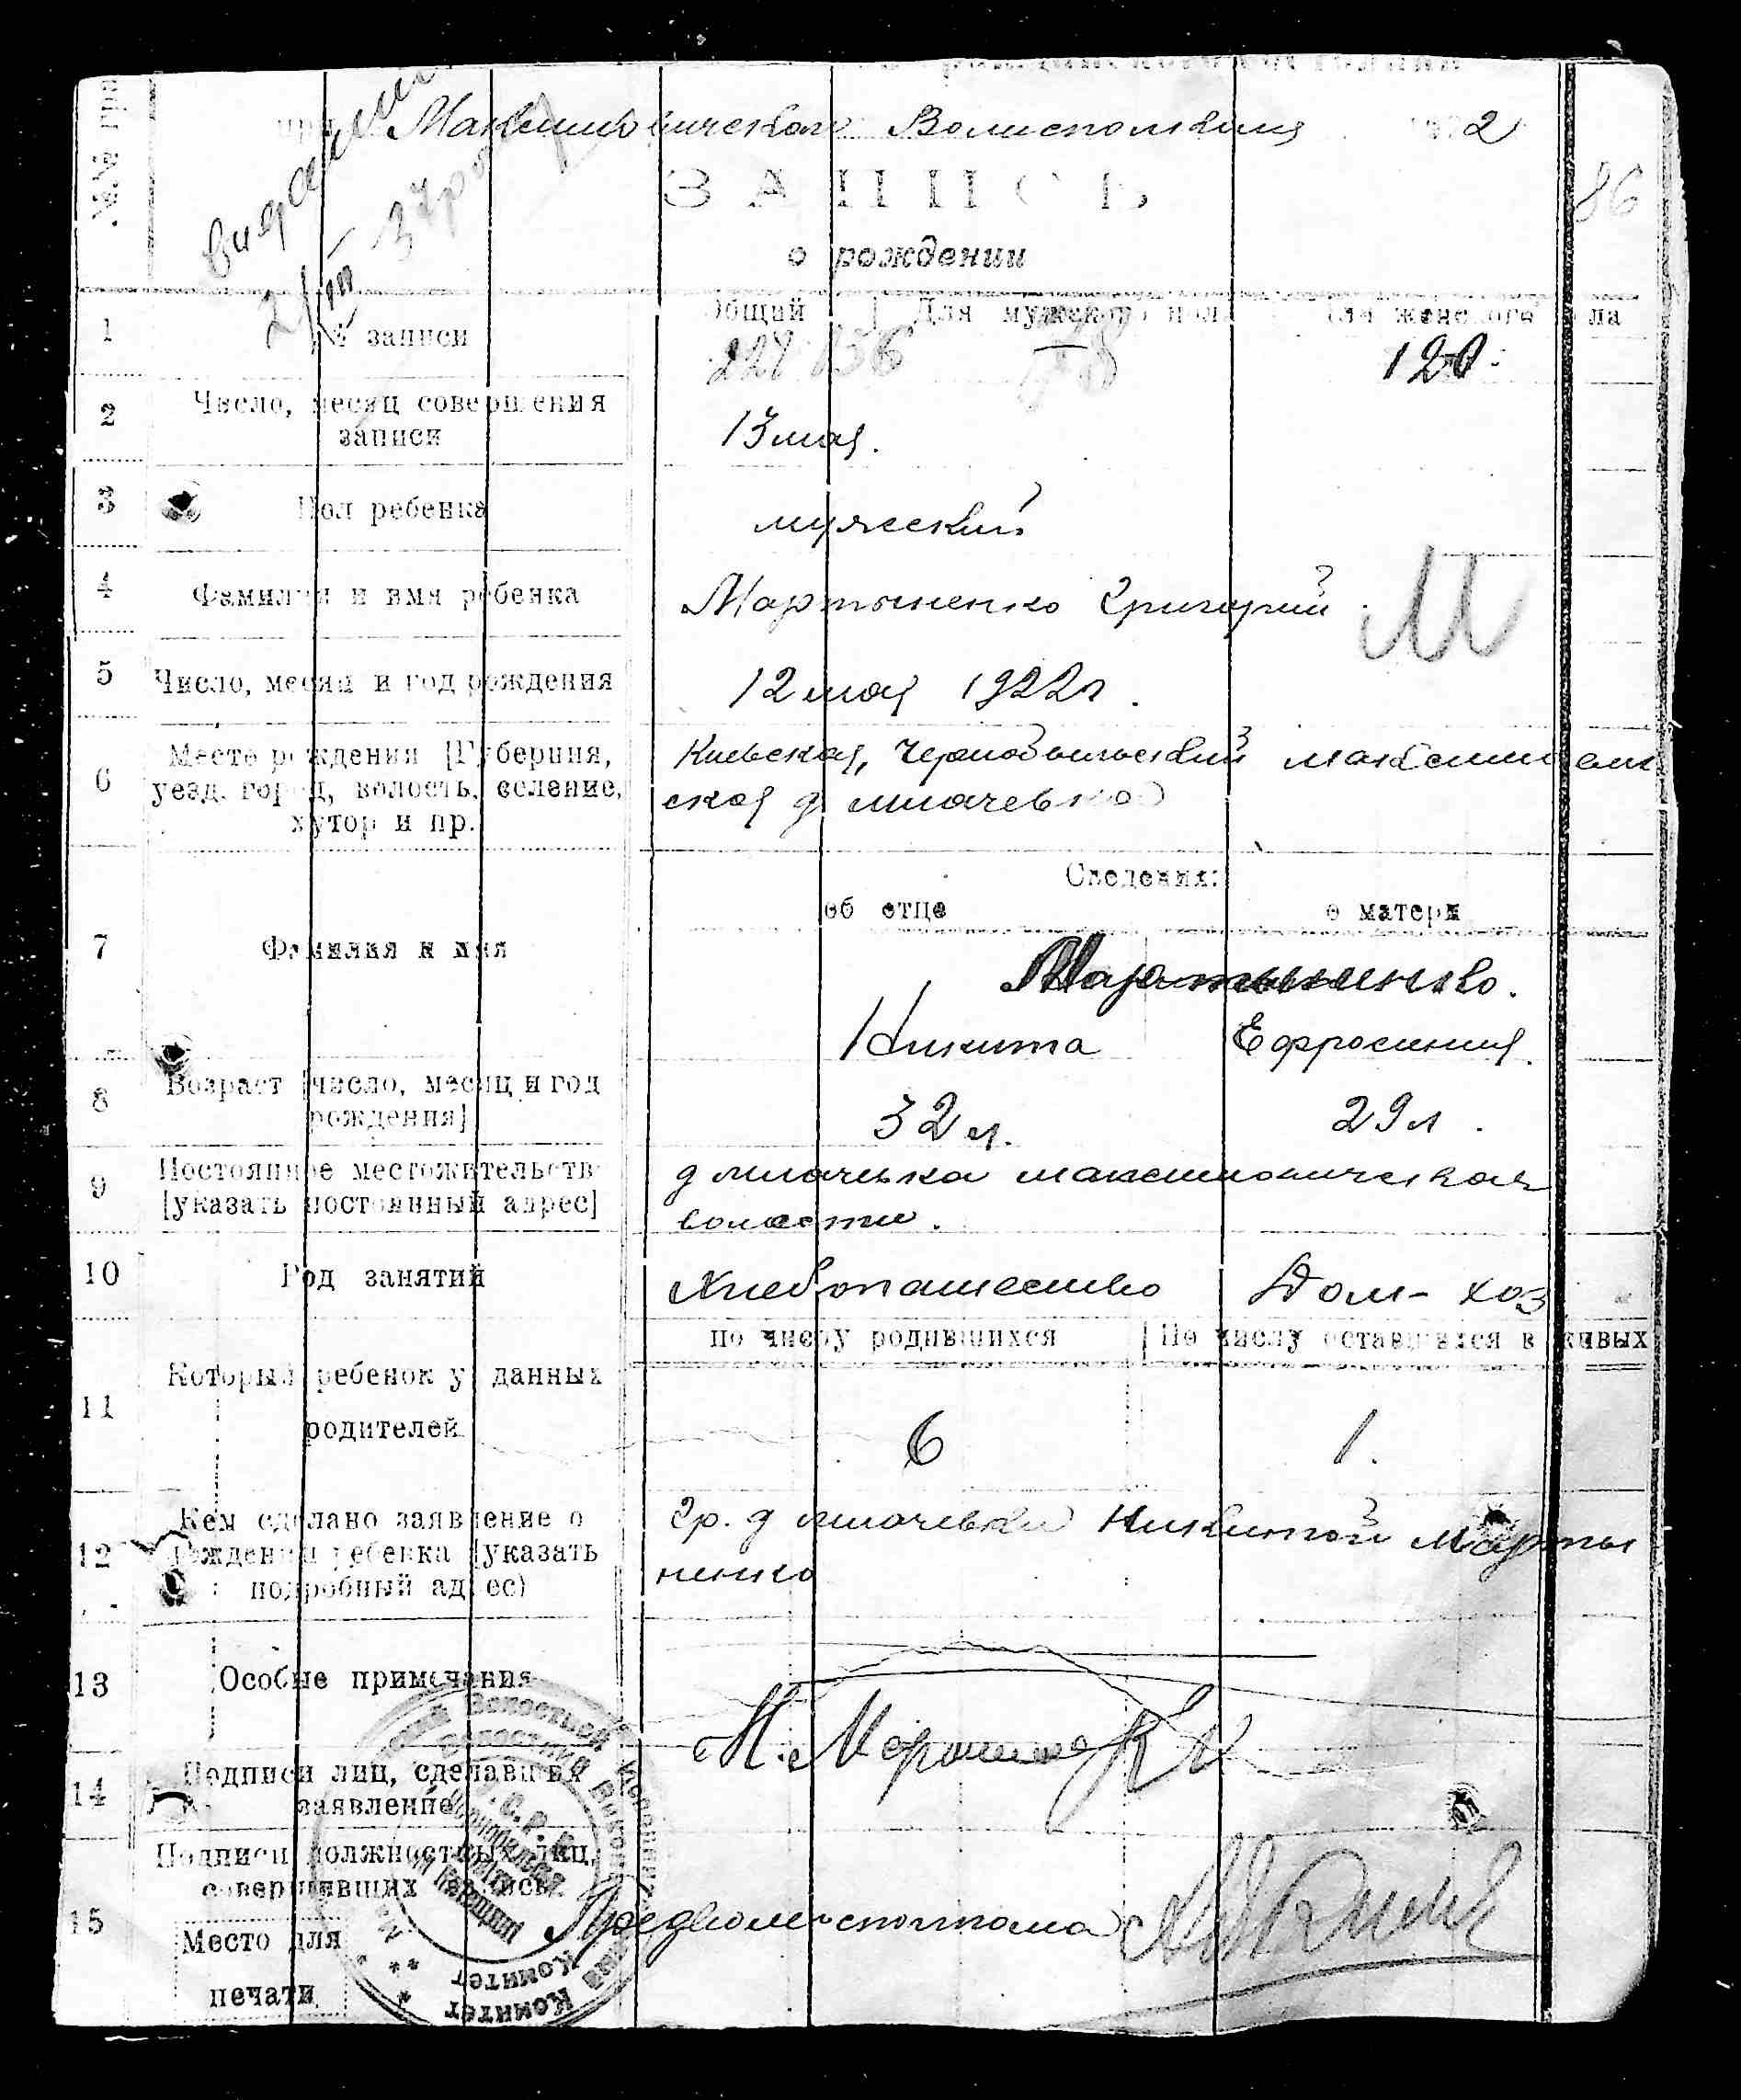 при Максимовическом Волисполкоме 1922
86
ЗАПИСЬ
о рождении
Общий Для мужского пол Для женского пола
1 № записи 120
2 Число, месяц совершения записи 13 мая.
3 Пол ребенка мужеский
4 Фамилия и имя ребенка Мартыненко Григорий М
5 Число, месяц и год рождения 12 мая 1922 г.
6 Место рождения [Губерния, Киевская, Чернобыльский
уезд, город, волость, селение, ская д
хутор и пр.
Сведения:
об отце о матери
7 Фамилия и имя
Мартыненко.
Никита Ефросиния.
8 Возраст [число, месяц и год рождения] 32 л. 29 л.
9 Постоянное местожительств
[указать постоянный адрес]
волости.
10 Род занятий Хлебопашество Дом-хоз
по числу родившихся По числу оставшихся в живых
11 Который ребенок у данных
родителей 6 1.
12 Кем сделано заявление о гр. д Никитой Марты
рождении ребенка [указать ненко
подробный адрес)
13 Особые примечания
14 Подписи лиц, сделавших
заявление
Подписи должностных лиц,
совершивших запись
15 Предволисполкома
Место для
печати
Комитет
Комитет